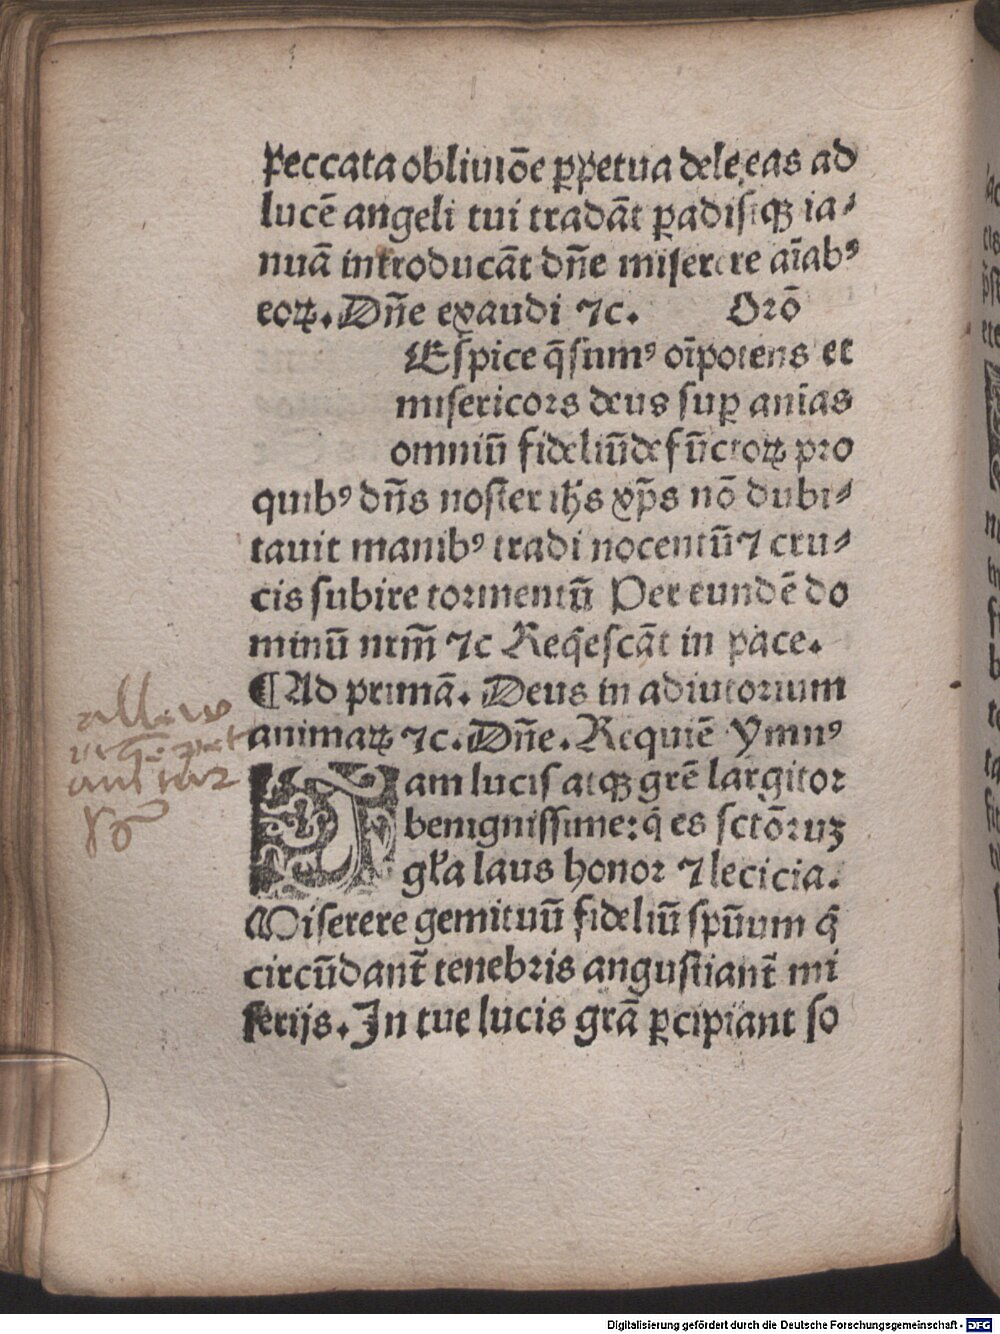 peccata obliuiõe ꝑpetua dele,eas ad
lucẽ angeli tui tradãt ꝑadisiqꝫ ia⸗
nuã introducãt dñe miserere aĩabꝰ
eoꝝ. Dñe exaudi ⁊c. Oꝛõ
Espice q̃sumꝰ oĩpotens et
misericoꝛs deus suꝑ anĩas
omniũ fideliũ defũctoꝝ pꝛo
quibꝰ dñs noster ihs xp̃s nõ dubi⸗
tauit manibꝰ tradi nocentũ ⁊ cru⸗
cis subire toꝛmentũ Per eundẽ do
minũ nrm̃ ⁊c Req̃escãt in pace.
¶ Ad primã. Deus in adiutoꝛium
animaꝝ ⁊c. Dñe. Requiẽ Ymnꝰ
Iam lucis atqꝫ grẽ largitoꝛ
benignissime: q̃ es sctõꝛuꝫ
gl̃a laus honoꝛ ⁊ lecicia.
Miserere gemituũ fideliũ spũum q̃
circũdant̃ tenebꝛis angustiant̃ mi
serijs. In tue lucis grã ꝑcipiant so
Digitalisierung gefördert durch die Deutsche Forschungsgemeinschaft - DFG